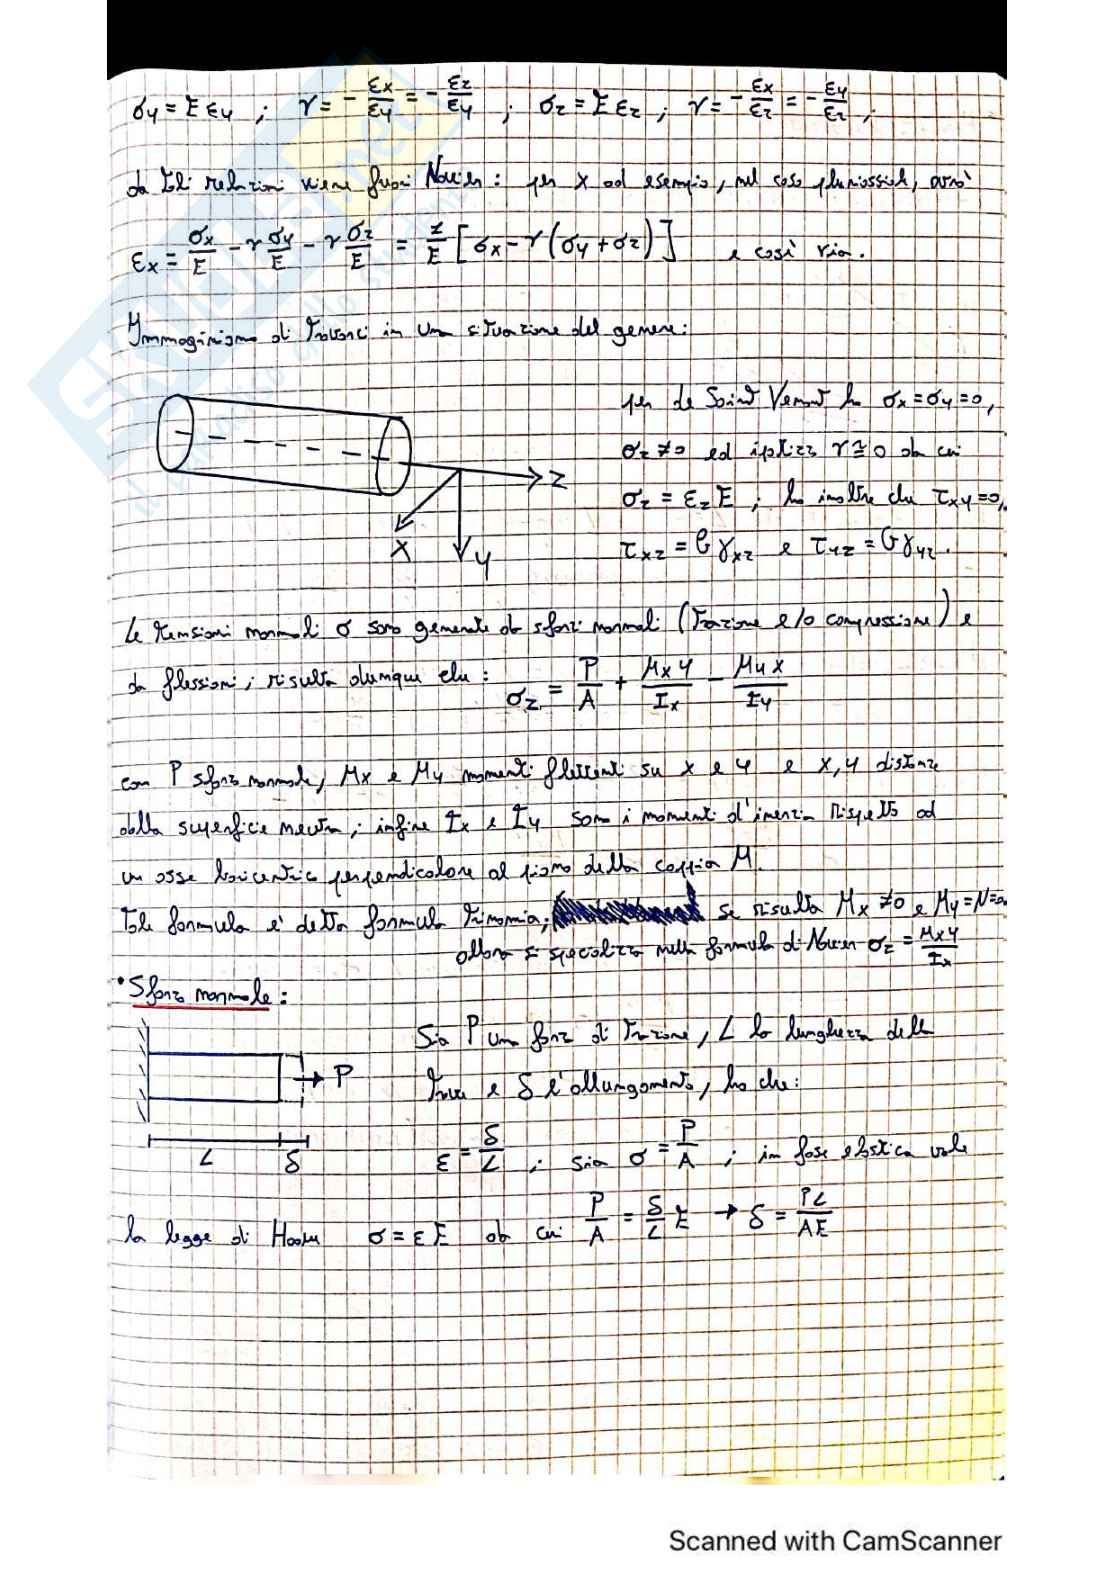 σy = E εy ; ν = - εx/εy = - εz/εy ; σz = E εz ; ν = - εx/εz = - εy/εz ;
da tali relazioni viene fuori Navier : per x ad esempio, nel caso pluriassiale, avrò
εx = σx/E - ν σy/E - ν σz/E = 1/E [σx - ν (σy + σz)] e così via.
Immaginiamo di trovarci in una situazione del genere :
per de Saint Venant ho σx = σy = 0,
σz ≠ 0 ed ipotizzo ν ≅ 0 da cui
z
σz = εz E ; ho inoltre che τxy = 0,
x y
τxz = G γxz e τyz = G γyz.
Le tensioni normali σ sono generate da sforzi normali (trazione e/o compressione) e
da flessioni ; risulta dunque che : σz = P/A + Mx y/Ix - My x/Iy
con P sforzo normale, Mx e My momenti flettenti su x e y e x, y distanze
dalla superficie neutra ; infine Ix e Iy sono i momenti d'inerzia rispetto ad
un asse baricentrico perpendicolare al piano della coppia M.
Tale formula è detta formula trinomia, se risulta Mx ≠ 0 e My = N = 0
allora si specializza nella formula di Navier σz = Mx y/Ix
• Sforzo normale :
Sia P una forza di trazione, L la lunghezza della
P
trave e δ l'allungamento, ho che :
L δ
ε = δ/L ; sia σ = P/A ; in fase elastica vale
la legge di Hooke σ = ε E da cui P/A = δ/L E → δ = PL/AE
Scanned with CamScanner